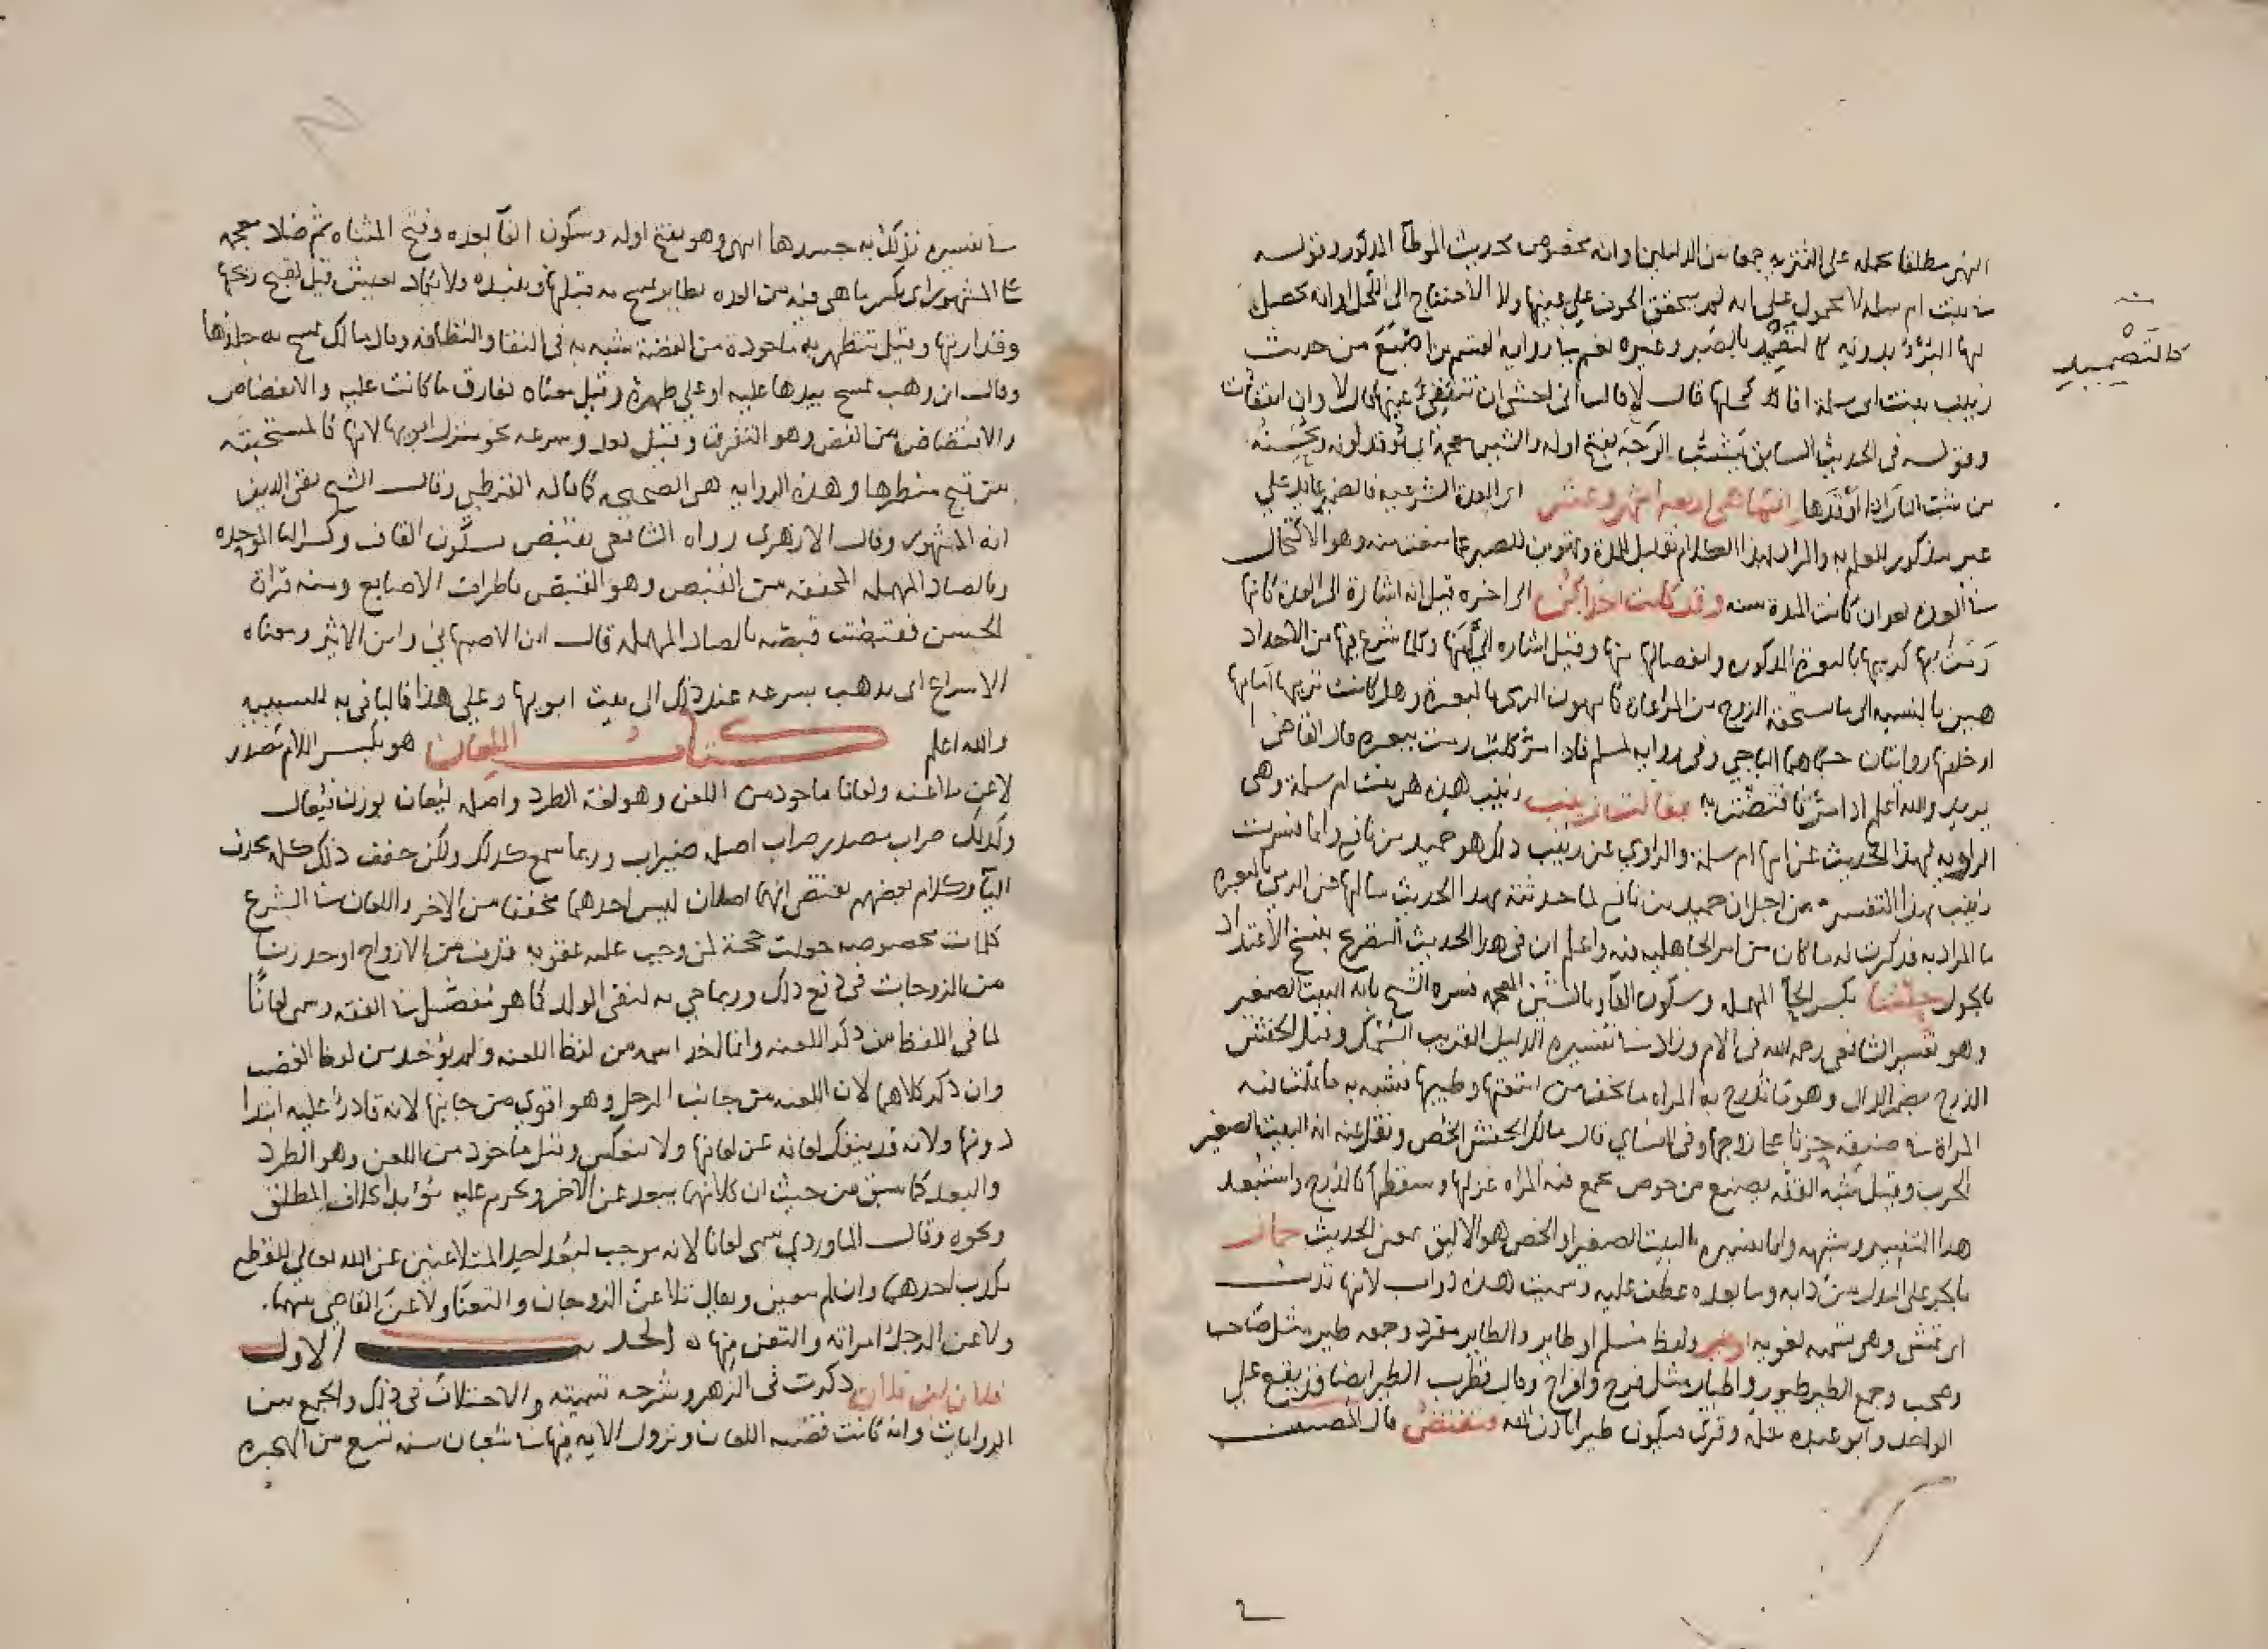 النهي مطلقا يحمله على التنزيه جمعا بين الدليلين وانه مخصوص بحديث الموطأ المذكور وقوله
بنت ام سلمة لا محمول على انه لم يتحقق الخوف على عينها ولا الاحتياج الى الكحل او انه يحصل
لها البرؤ بدونه كالتضميد بالصبر وغيره نعم في رواية لقسم بن اصبغ من حديث
زينب بنت ابي سلمة افاكحلها قال لا قالت اني اخشى ان تنفقئ عينها قال لا وان انفقأت
وقوله في الحديث السابق يشب الوجه بفتح اوله والشين معجمة اي يوقد لونه ويحسنه
من شب النار اذا اوقدها انما هي اربعة اشهر وعشر اي العدة الشرعية فالضمير عايد على
غير مذكور للعلم به والمراد بهذا الكلام تقليل المدة وتهوين الصبر عما منعت منه وهو الاكتحال
في العدة بعد ان كانت المدة سنة وقد كانت احداكن الى اخره قيل انه اشارة الى العدة كانها
رمت بها كرميها بالبعرة المذكورة وانفصالها منها وقيل اشارة الى ان ما شرع فيها من الاحداد
هين بالنسبة الى ما يستحقه الزوج من المراعاة كما يهون الرمي بالبعرة وهل كانت ترميها امامها
او خلفها روايتان حكاهما الباجي وفي رواية لمسلم فاذا مر كلب رمت ببعرة قال القاضي
يريد والله اعلم اذا مر فافتضت به فقالت زينب زينب هذه هي بنت ام سلمة وهي
الراوية لهذا الحديث عن امها ام سلمة والراوي عن زينب ذلك هو حميد بن نافع وانما فسرت
زينب بهذا التفسير من اجل ان حميد بن نافع لما حدثته بهذا الحديث سالها عن الرمي بالبعرة
ما المراد به فذكرت له ما كان من امر الجاهلية فيه واعلم ان في هذا الحديث التصريح بنسخ الاعتداد
بالحول حفشا بكسر الحاء المهملة وسكون الفاء وبالشين المعجمة فسره الشيخ بانه البيت الصغير
وهو تفسير الشافعي رحمه الله في الام وزاد في تفسيره الذليل القريب السمك وقيل الحفش
الدرج بضم الدال وهو ما تدرج به المراة ما يخف من امتعتها وطيبها فشبه به ما دخلت فيه
المراة في ضيقه حزنا على زوجها وفي النساي قال مالك الحفش الخص ونقل عنه انه البيت الصغير
الخرب وقيل شبه القفة يصنع من خوص يجمع فيه المراة غزلها وسقطها كالدرج واستبعد
هذا التفسير وشبهه وانما تفسيره بالبيت الصغير او الخص هو الاليق بمعنى الحديث حمار
بالجر على البدل من دابة وما بعده عطف عليه وسميت هذه دواب لانها تدب
اي تمشي وهي تسمية لغوية او طير ولفظ مسلم او طاير والطاير مفرد وجمعه طير مثل صاحب
وصحب وجمع الطير طيور واطيار مثل فرخ وافراخ وقال قطرب الطير ايضا قد يقع على
الواحد وابو عبيدة مثله وقرئ فيكون طيرا باذن الله فتفتض قال المصنف
كالتضميد
في تفسيره تدلك به جسدها انتهى وهو بفتح اوله وسكون الفاء بعده وفتح المثناة ثم ضاد معجمة
على المشهور اي تكسر ما هي فيه من العدة بطاير تمسح به قبلها وتنبذه ولا يكاد يعيش قيل لقبح ريحها
وقذارتها وقيل تتطهر به ماخوذة من الفضة تشبه به في النقا والنظافة وقال مالك تمسح به جلدها
وقال ابن وهب تمسح بيدها عليه او على ظهره وقيل معناه تفارق ما كانت عليه والانفضاض
والافتضاض من الفض وهو التفرق وقيل تعدو مسرعة نحو منزل ابويها لانها كالمستحيية
من قبح منظرها وهذه الرواية هي الصحيحة كما قاله القرطبي وقال الشيخ تقي الدين
انه المشهور وقال الازهري رواه الشافعي تقتبص بسكون القاف وكسر البا الموحدة
وبالصاد المهملة المخففة من القبص وهو القبض باطراف الاصابع ومنه قراة
الحسن فقبصت قبصة بالصاد المهملة قال ابن الاصبهاني وابن الاثير ومعناه
الاسراع اي تذهب بسرعة عند ذلك الى بيت ابويها وعلى هذا فالبا في به للسببية
والله اعلم كتاب اللعان هو بكسر اللام مصدر
لاعن ملاعنة ولعانا ماخوذ من اللعن وهو لغة الطرد واصله ليعان بوزن فيعال
وكذلك ضراب مصدر ضارب اصله ضيراب وربما سمع كذلك ولكن خفف ذلك كله بحذف
الياء وكلام بعضهم يقتضي انهما اصلان ليس احدهما مخففا من الاخر واللعان في الشرع
كلمات مخصوصة جعلت حجة لمن وجب عليه عقوبة قذف من الازواج او حد زنا
من الزوجات في دفع ذلك وربما جي به لنفي الولد كما هو مفصل في الفقه وسمي لعانا
لما في اللفظ من ذكر اللعنة وانما اخذ اسمه من لفظ اللعنة ولم يؤخذ من لفظ الغضب
وان ذكر كلاهما لان اللعنة من جانب الرجل وهو اقوى من جانبها لانه قادر عليه ابتدا
دونها ولانه قد ينفك لعانه عن لعانها ولا ينعكس وقيل ماخوذ من اللعن وهو الطرد
والبعد كما سبق من حيث ان كلا منهما يبعد عن الاخر ويحرم عليه مؤبدا بخلاف المطلق
ونحوه وقال الماوردي سمي لعانا لانه موجب لبعد احد المتلاعنين عن الله تعالى للقطع
بكذب احدهما وان لم يتعين ويقال تلاعن الزوجان والتعنا ولاعن القاضي بينهما
ولاعن الرجل امراته والتعن منها الحديث الاول
فلان بن فلان ذكرت في الزهر وشرحه تسميته والاختلاف في ذلك والجمع بين
الروايات وانه كانت قصة اللعان ونزول الاية فيها في شعبان سنة تسع من الهجرة